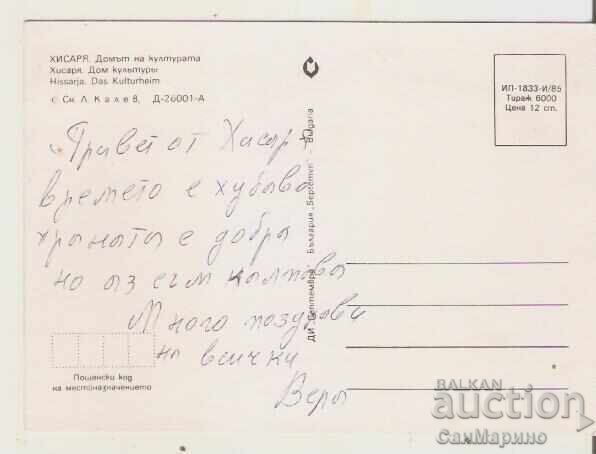 ХИСАРЯ. Домът на културата
Хисаря. Дом культуры
Hissarja. Das Kulturheim
© Сн. Л. Калев, Д-26001-А
ИП-1833-И/85
Тираж 6000
Цена 12 ст.
Привет от Хисаря
времето е хубаво
храната е добра
но аз съм
Много поздрави
на всички
Вера
ДИ „Септември" - България „Septemvri" - Bulgaria
Пощенски код
на местоназначението
BALKAN
auction
СанМарино